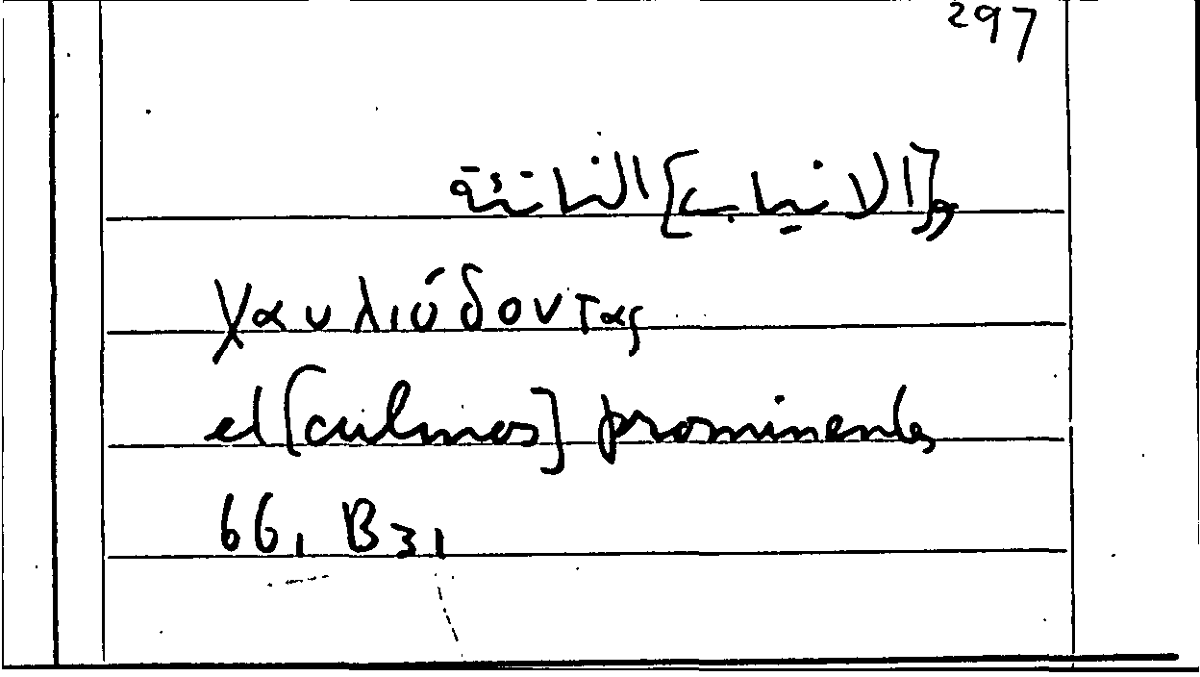 297
و[الانياب] الناتئة
χαυλιόδοντας
et [culmos] prominentes
661 B31